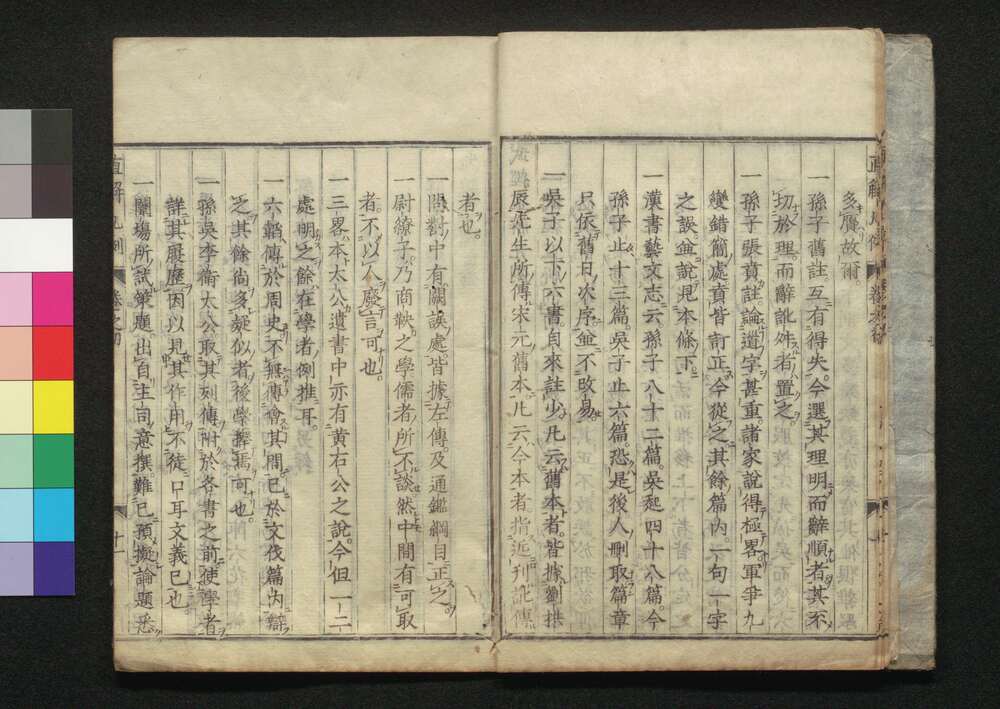 多贋故爾
一孫子舊註互有得失今選其理明而辭順者其不
切於理而辭訛舛者置之
一孫子張賁註論遺字甚重諸家說得極畧軍爭九
變錯簡處賁皆訂正今從之其餘篇內一句一字
之誤並說見本條下
一漢書藝文志云孫子八十二篇吳起四十八篇今
孫子止十三篇吳子止六篇恐是後人刪取篇章
只依舊日次序並不敢易
一吳子以下六書自來註少凡云舊本者皆據劉拱
辰先生所傳宋元舊本凡云今本者指近刊訛傳
者也
一問對中有闕誤處皆據左傳及通鑑綱目正之
一尉繚子乃商鞅之學儒者所不談然中間有可取
者不以人廢言可也
一三畧本太公遺書中亦有黃石公之說今但一二
處明之餘在學者例推耳
一六韜傳於周史不無傳會其間已於文伐篇內辯
之其餘尚多疑似者後學擇焉可也
一孫吳李衛太公取其列傳附於各書之前使學者
詳其履歷因以見其作用不徒口耳文義已也
一闈場所試策題出自主司意撰難已預擬論題悉
直解 凡例 卷之首 十一